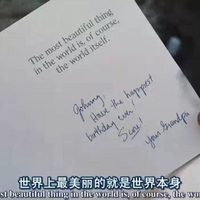 The most beautiful thing
in the world is, of course,
the world itself.
Johnny,
Have the happiest
birthday ever!
Your Grandpa
世界上最美丽的就是世界本身
st beautiful thing in the world is, of course, the wor